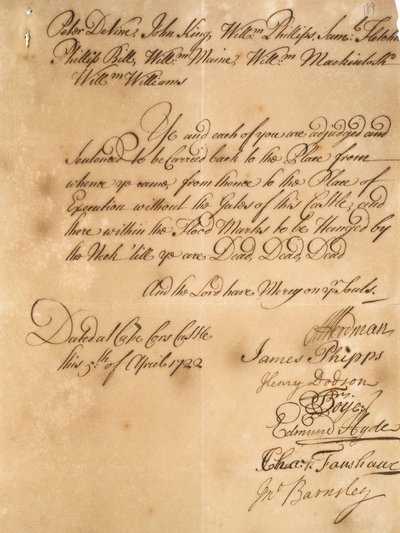 184
Peter De Vine, John King, Willm Phillips, Saml Fletcher
Philip Bill, Willm Maine, Willm Mackintosh
Willm Williams
Ye and each of you are adjudged and
Sentenced to be Carried back to the Place from
whence ye came, from thence to the Place of
Execution without the Gates of this Castle, and
there within the Flood Marks to be Hanged by
the Neck 'till ye are Dead, Dead, Dead
And the Lord have Mercy on yr Souls.
Dated at Cabo Cors Castle
this 5th of April 1722
Herdman
James Phipps
Henry Dodson
Boye
Edmund Hyde
Chars Fanshaw
Jno Barnsley